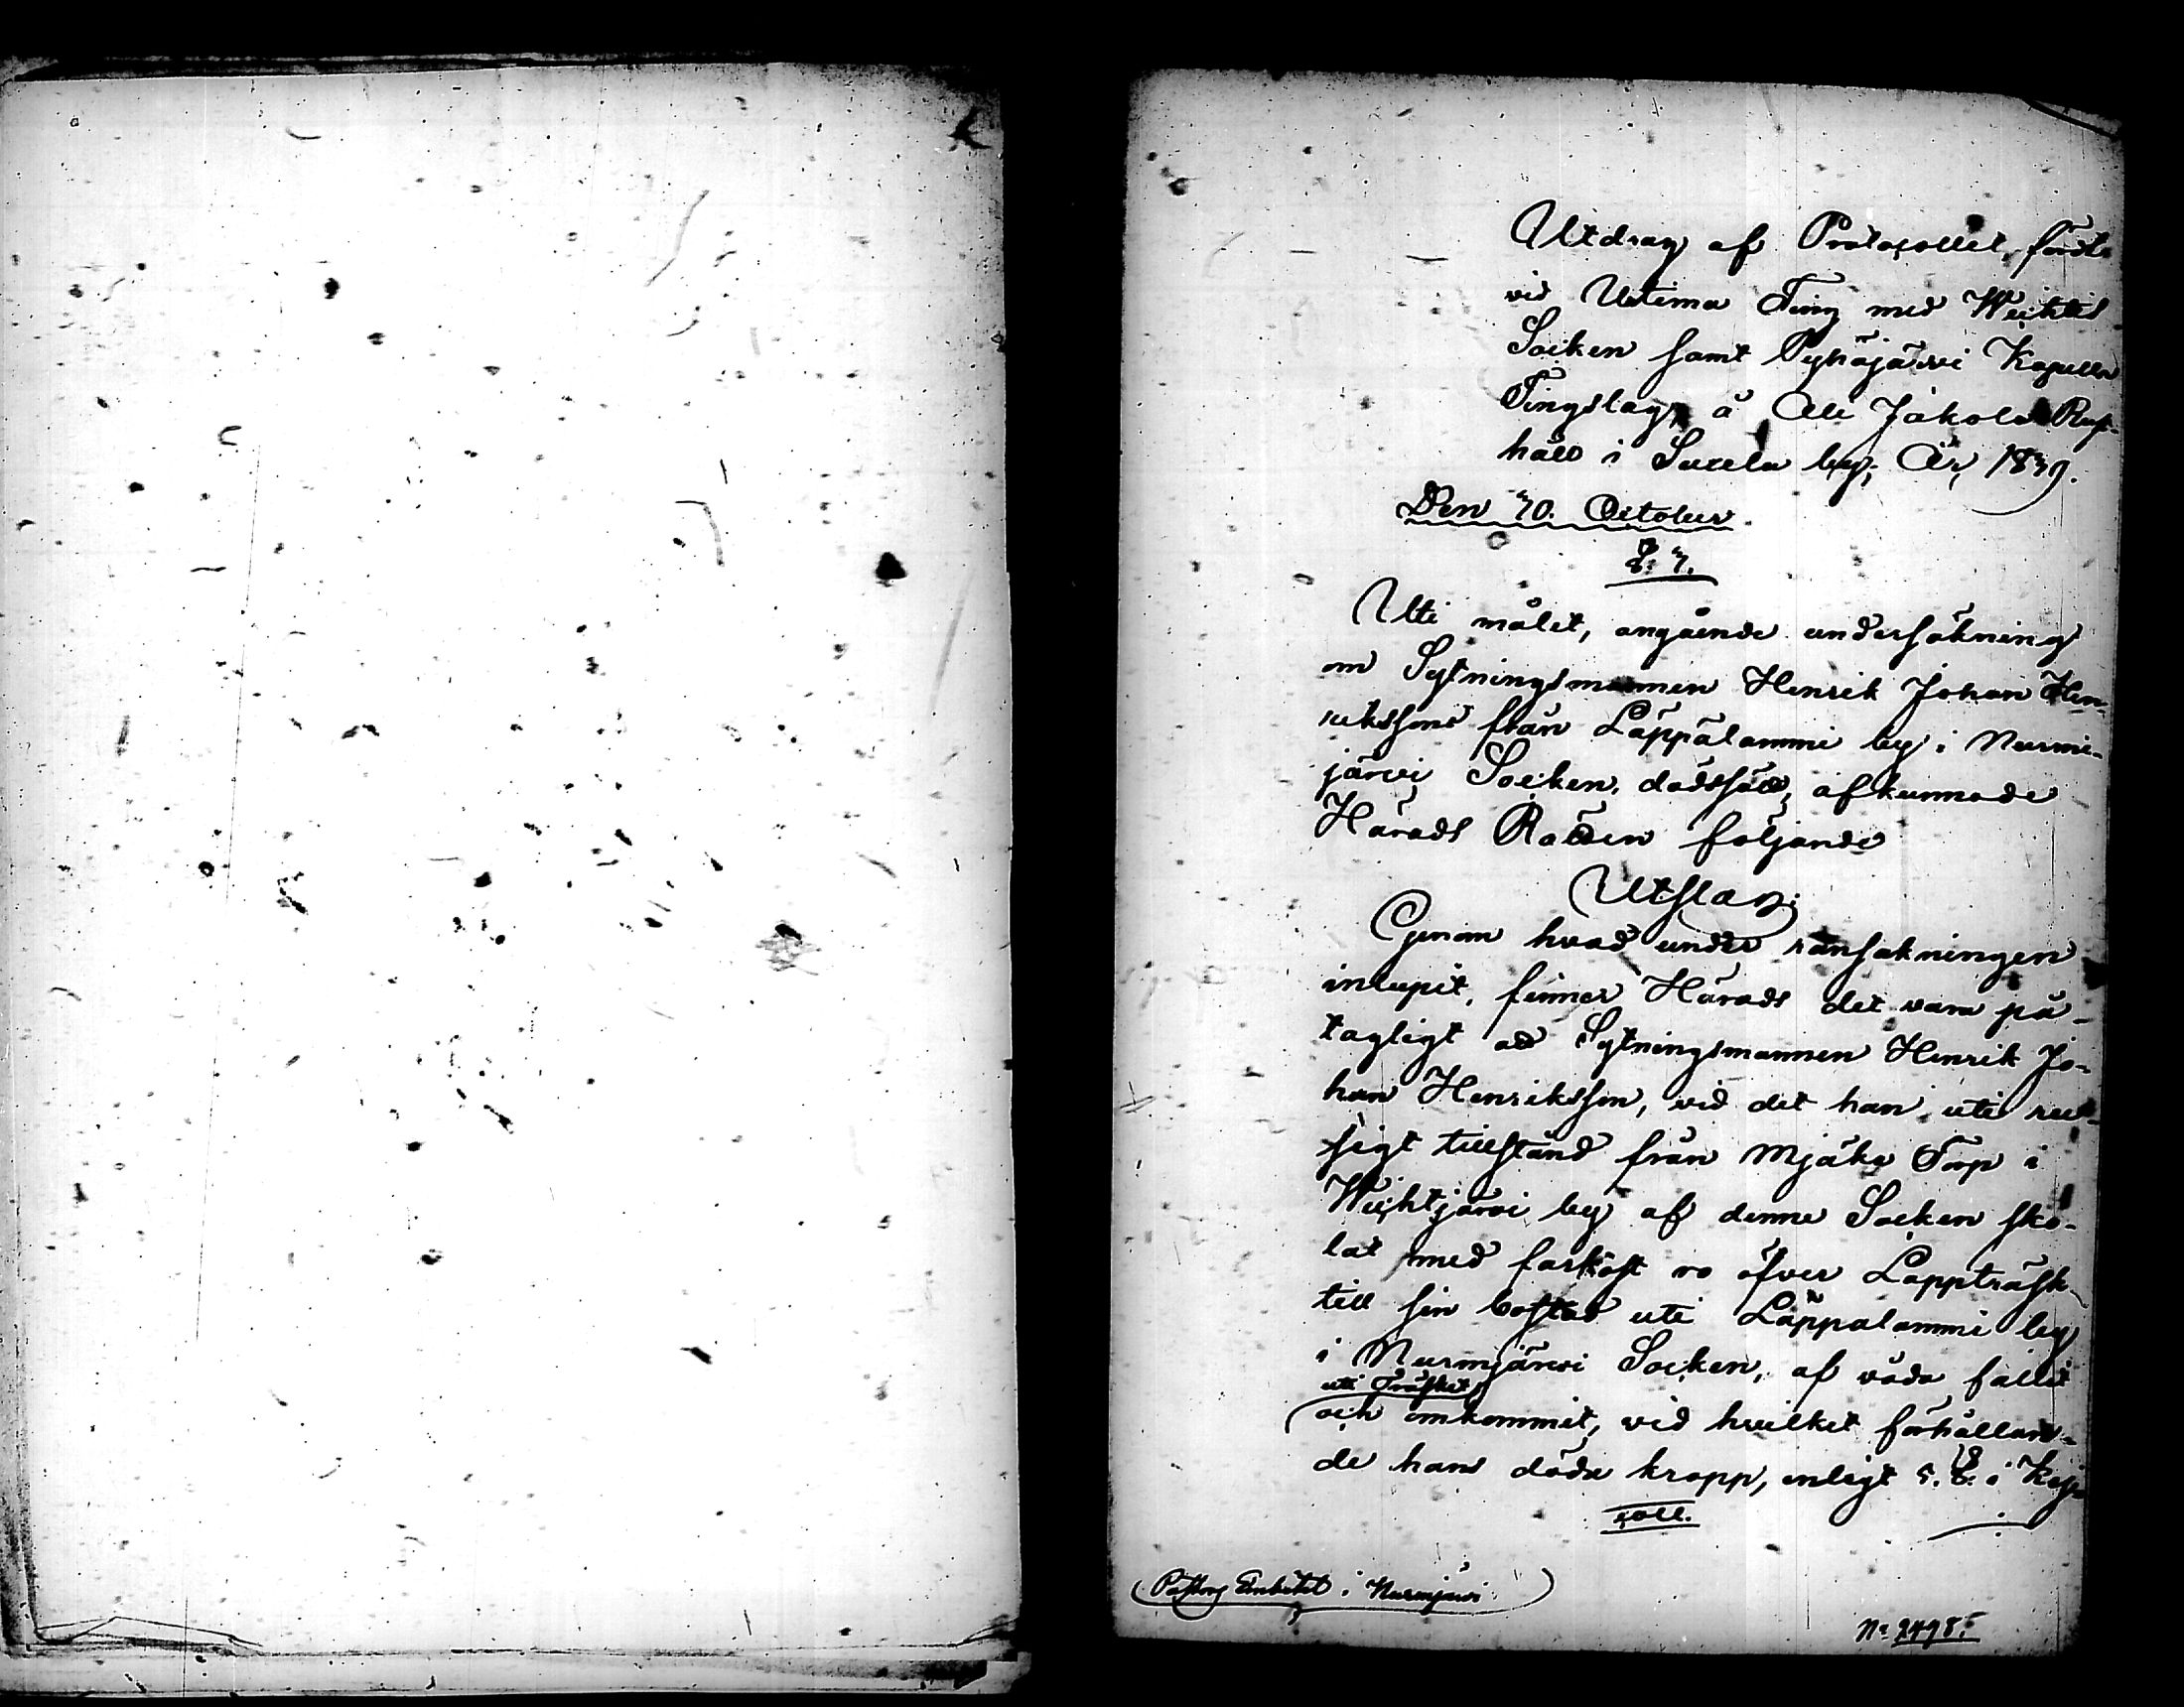 Utdrag af Protocollet, fördt
vid Urtima Ting med Wichtis
Socken samt Pyhäjärvi Kapells
Tingslag, å Ali Jakola Rust-
håll i Suxela by; År, 1839.
Den 30. October.
§. 3.
Uti målet, angående undersökning
om Sytningsmannen Henrik Johan Hen-
rikssons från Läppälammi by i Nurmi-
järvi Socken, dödssätt, afkunnade
Härads Rätten följande
Utslag;
Genom hvad under ransakningen
inlupit, finner Härads det vara på-
tagligt att Sytningsmannen Henrik Jo-
han Henriksson, vid det han, uti ru-
sigt tillstånd från Mjäke Torp i
Wichtjärvi by af denne Socken sko-
lat med farkost ro öfver Lappträsk
till sin bostad uti Läppalammi by
i Nurmjärvi Socken, af våda fallit
uti Träsket,
och omkommit, vid hvilket förhållan-
de hans döda kropp, enligt 5. §. i Kej-
coll.
Pastors Embetet i Nurmjärvi
No 24985